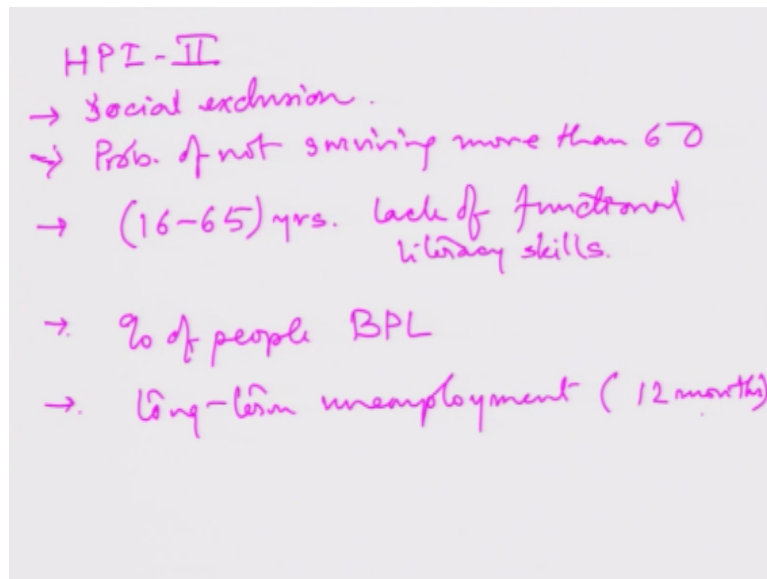 HPI-II
→ Social exclusion.
→ Prob. of not surviving more than 60
→ (16-65) yrs. lack of functional
literacy skills.
→. % of people BPL
→. long-term unemployment (12 months)